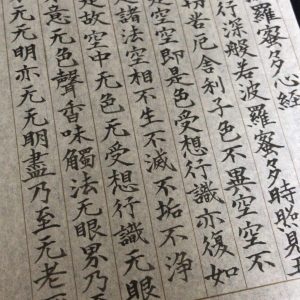 羅蜜多心經
行深般若波羅蜜多時照見五
切苦厄舍利子色不異空空不
空空即是色受想行識亦復如
是諸法空相不生不滅不垢不浄
是故空中无色无受想行識无眼
意无色聲香味觸法无眼界乃
无无明亦无无明盡乃至无老